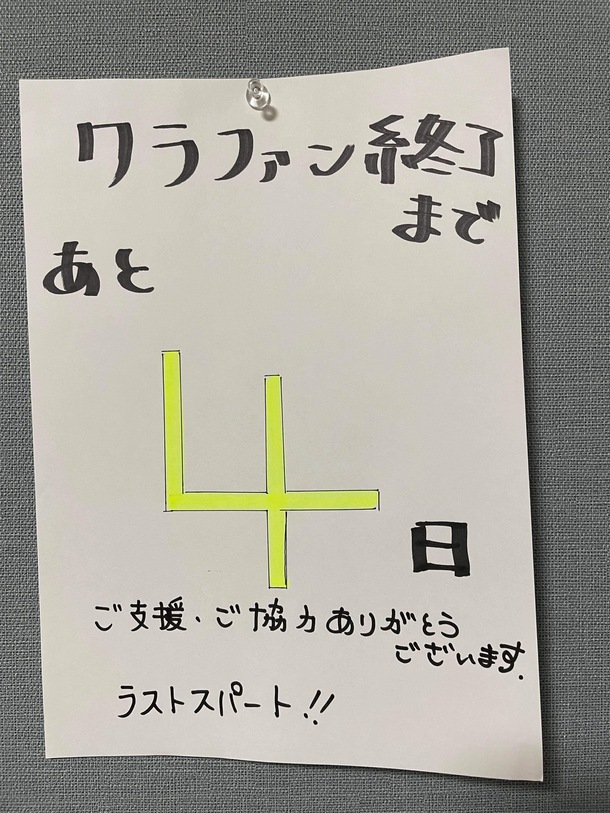 クラファン終了
まで
あと
4
日
ご支援・ご協力ありがとう
ございます.
ラストスパート!!